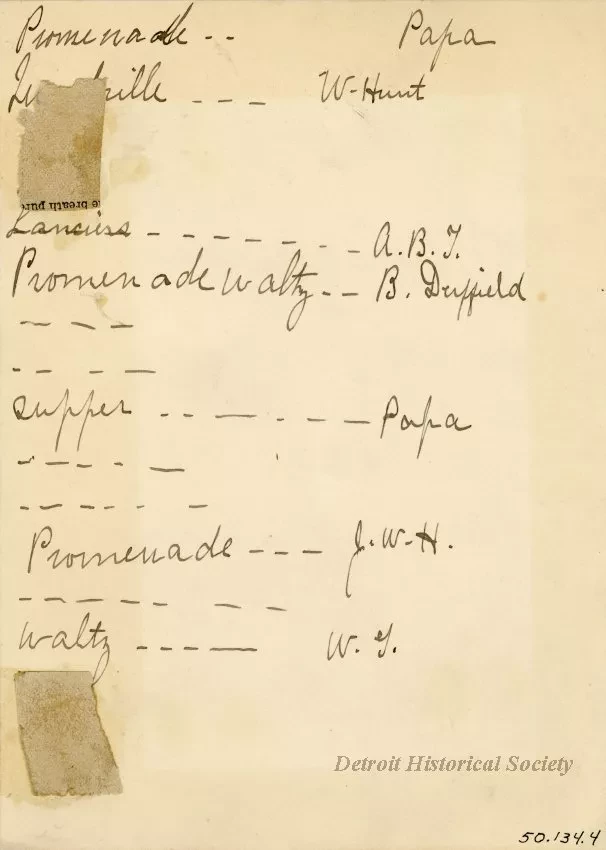 Promenade -- Papa
Qu drille --- W-Hunt
e breath pure
Lanciers - - - - - - - - A. B. T.
Promenade waltz -- B. Duffield
- - - -
-- - —
Supper -- — - - — Papa
- - - - —
- - - - - -
Promenade --- J. W-H.
- - - - - - - - -
Waltz - - - - — W. T.
Detroit Historical Society
50.134.4